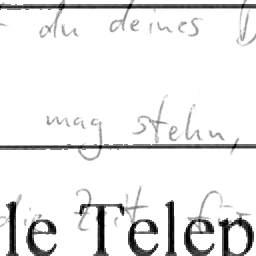 du deines
mag stehn,
die Zeit für
le Telep